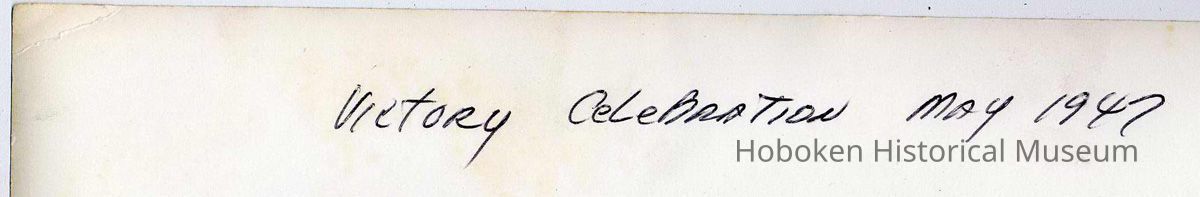 Victory Celebration May 1947
Hoboken Historical Museum